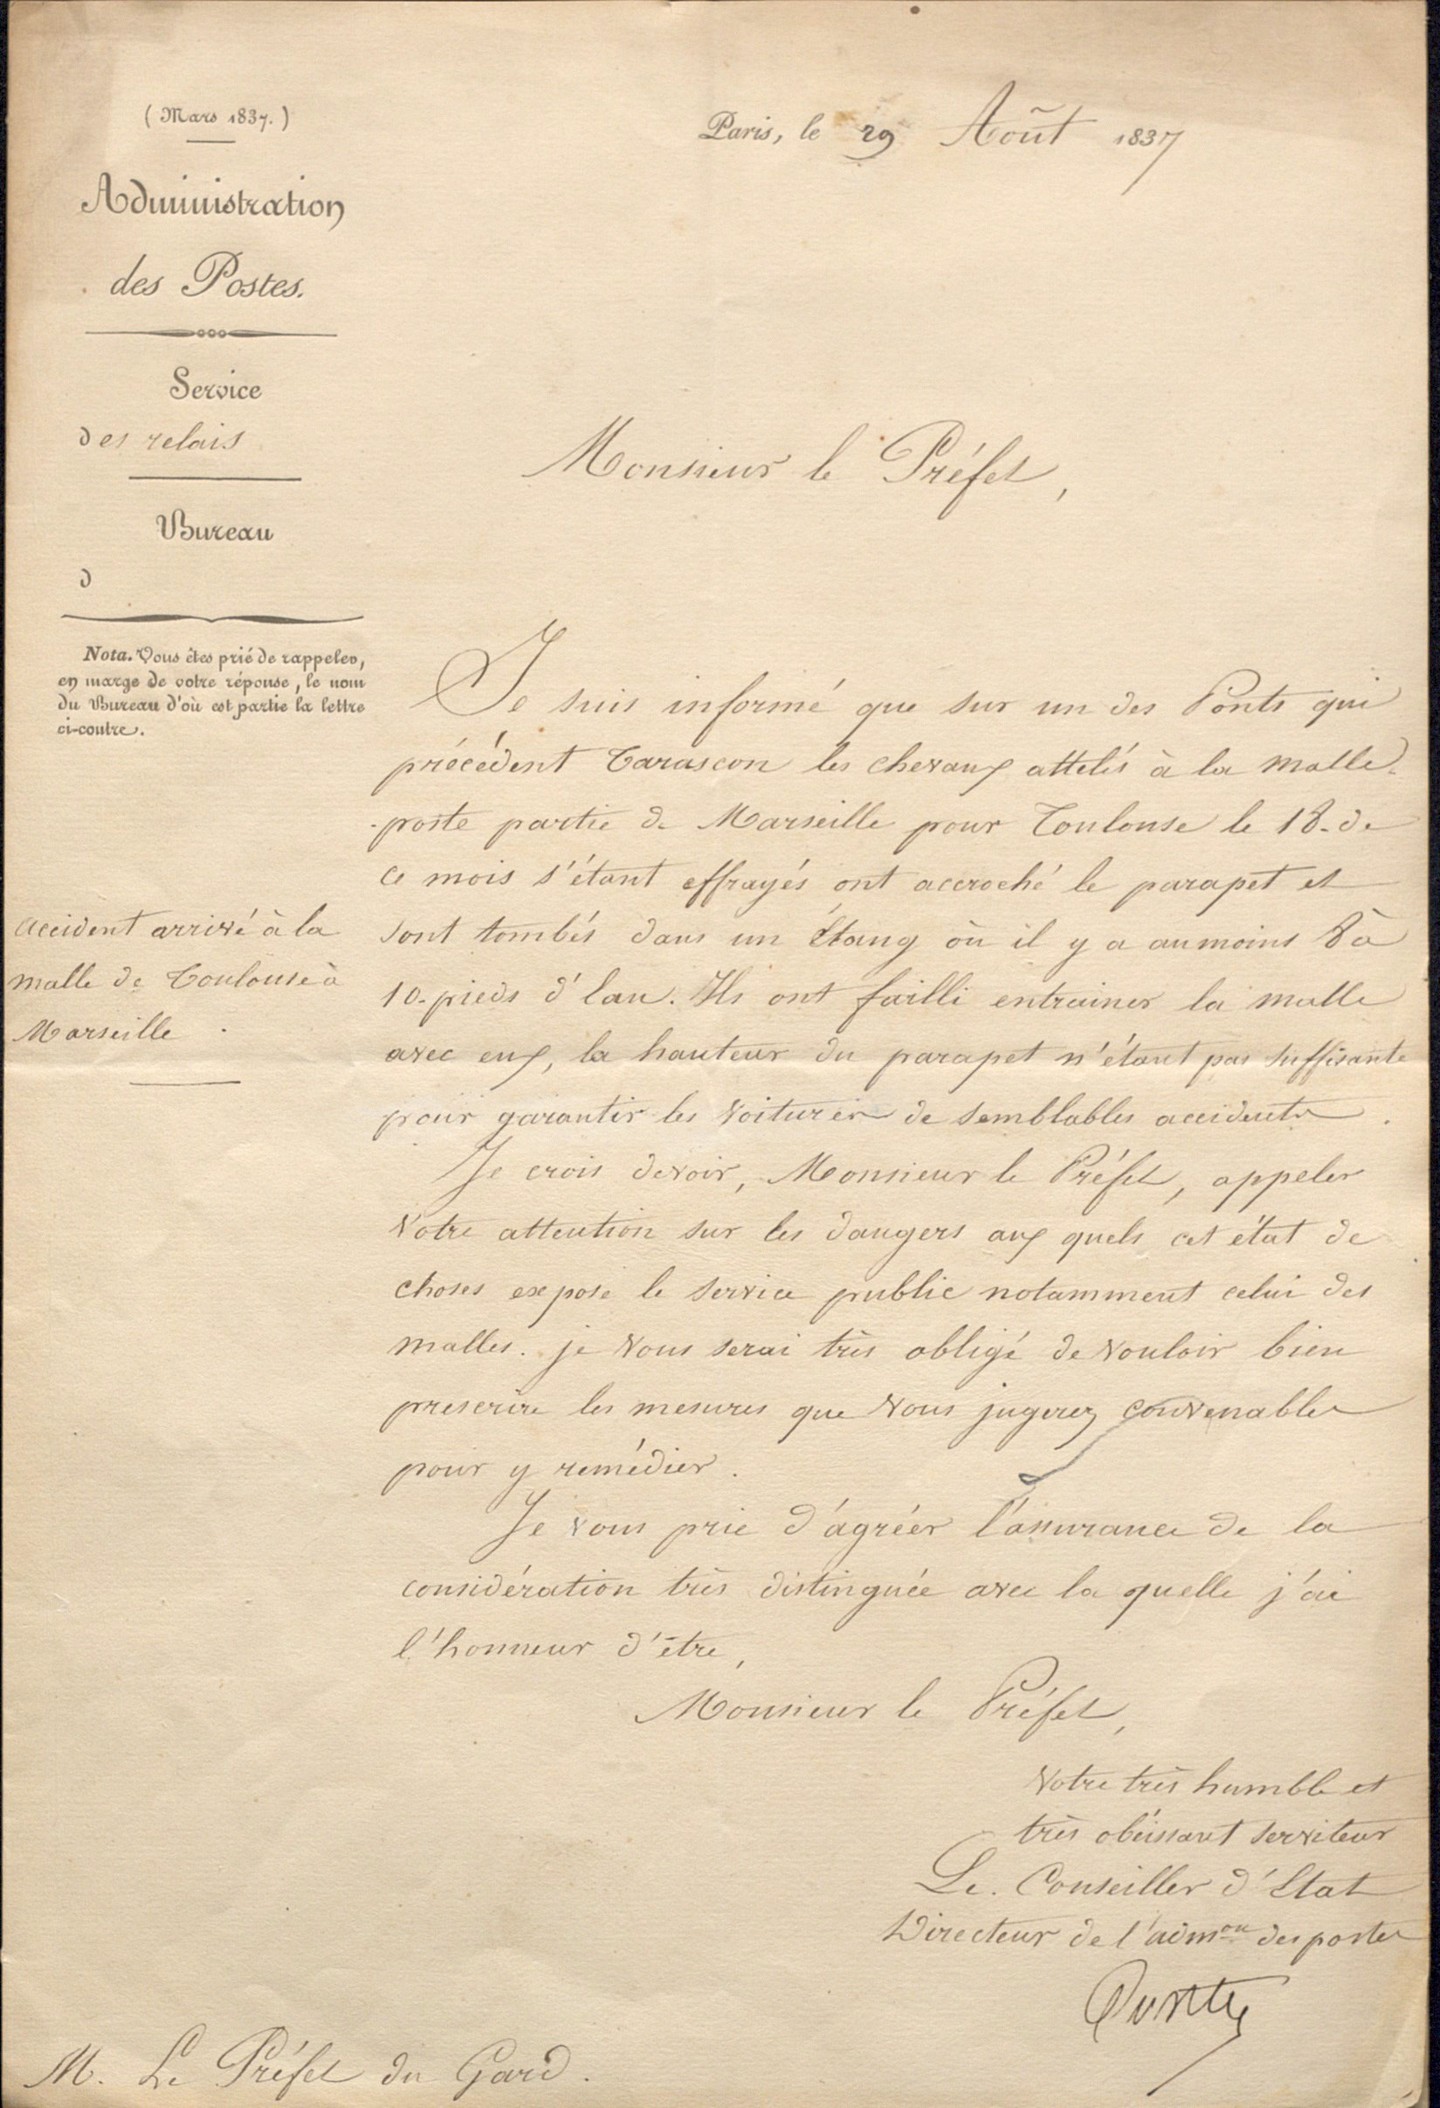 ( Mars 1837. )
Paris, le 29 Août 1837
Administration
des Postes.
Service
des relais
Bureau
d
Nota. Vous êtes prié de rappeler,
en marge de votre réponse, le nom
du Bureau d'où est partie la lettre
ci-contre.
Accident arrivé à la
malle de Toulouse à
Marseille
Monsieur le Préfet,
Je suis informé que sur un des Ponts qui
précédent Tarascon les chevaux attelés à la malle-
-poste partie de Marseille pour Toulouse le 18. de
ce mois s'étant effrayés ont accroché le parapet et
sont tombés dans un Étang où il y a au moins 8 à
10. pieds d'eau. Ils ont failli entrainer la malle
avec eux, la hauteur du parapet n'étant pas suffisante
pour garantir les voitures de semblables accidents.
Je crois devoir, Monsieur le Préfet, appeler
votre attention sur les dangers aux quels cet état de
choses expose le service public notamment celui des
malles. je vous serai très obligé de vouloir bien
prescrire les mesures que vous jugerez convenables
pour y remédier.
Je vous prie d'agréer l'assurance de la
considération très distinguée avec la quelle j'ai
l'honneur d'être,
Monsieur le Préfet,
Votre très humble et
très obéissant serviteur
Le. Conseiller d'Etat
Directeur de l'admon des postes
M. Le Préfet du Gard.